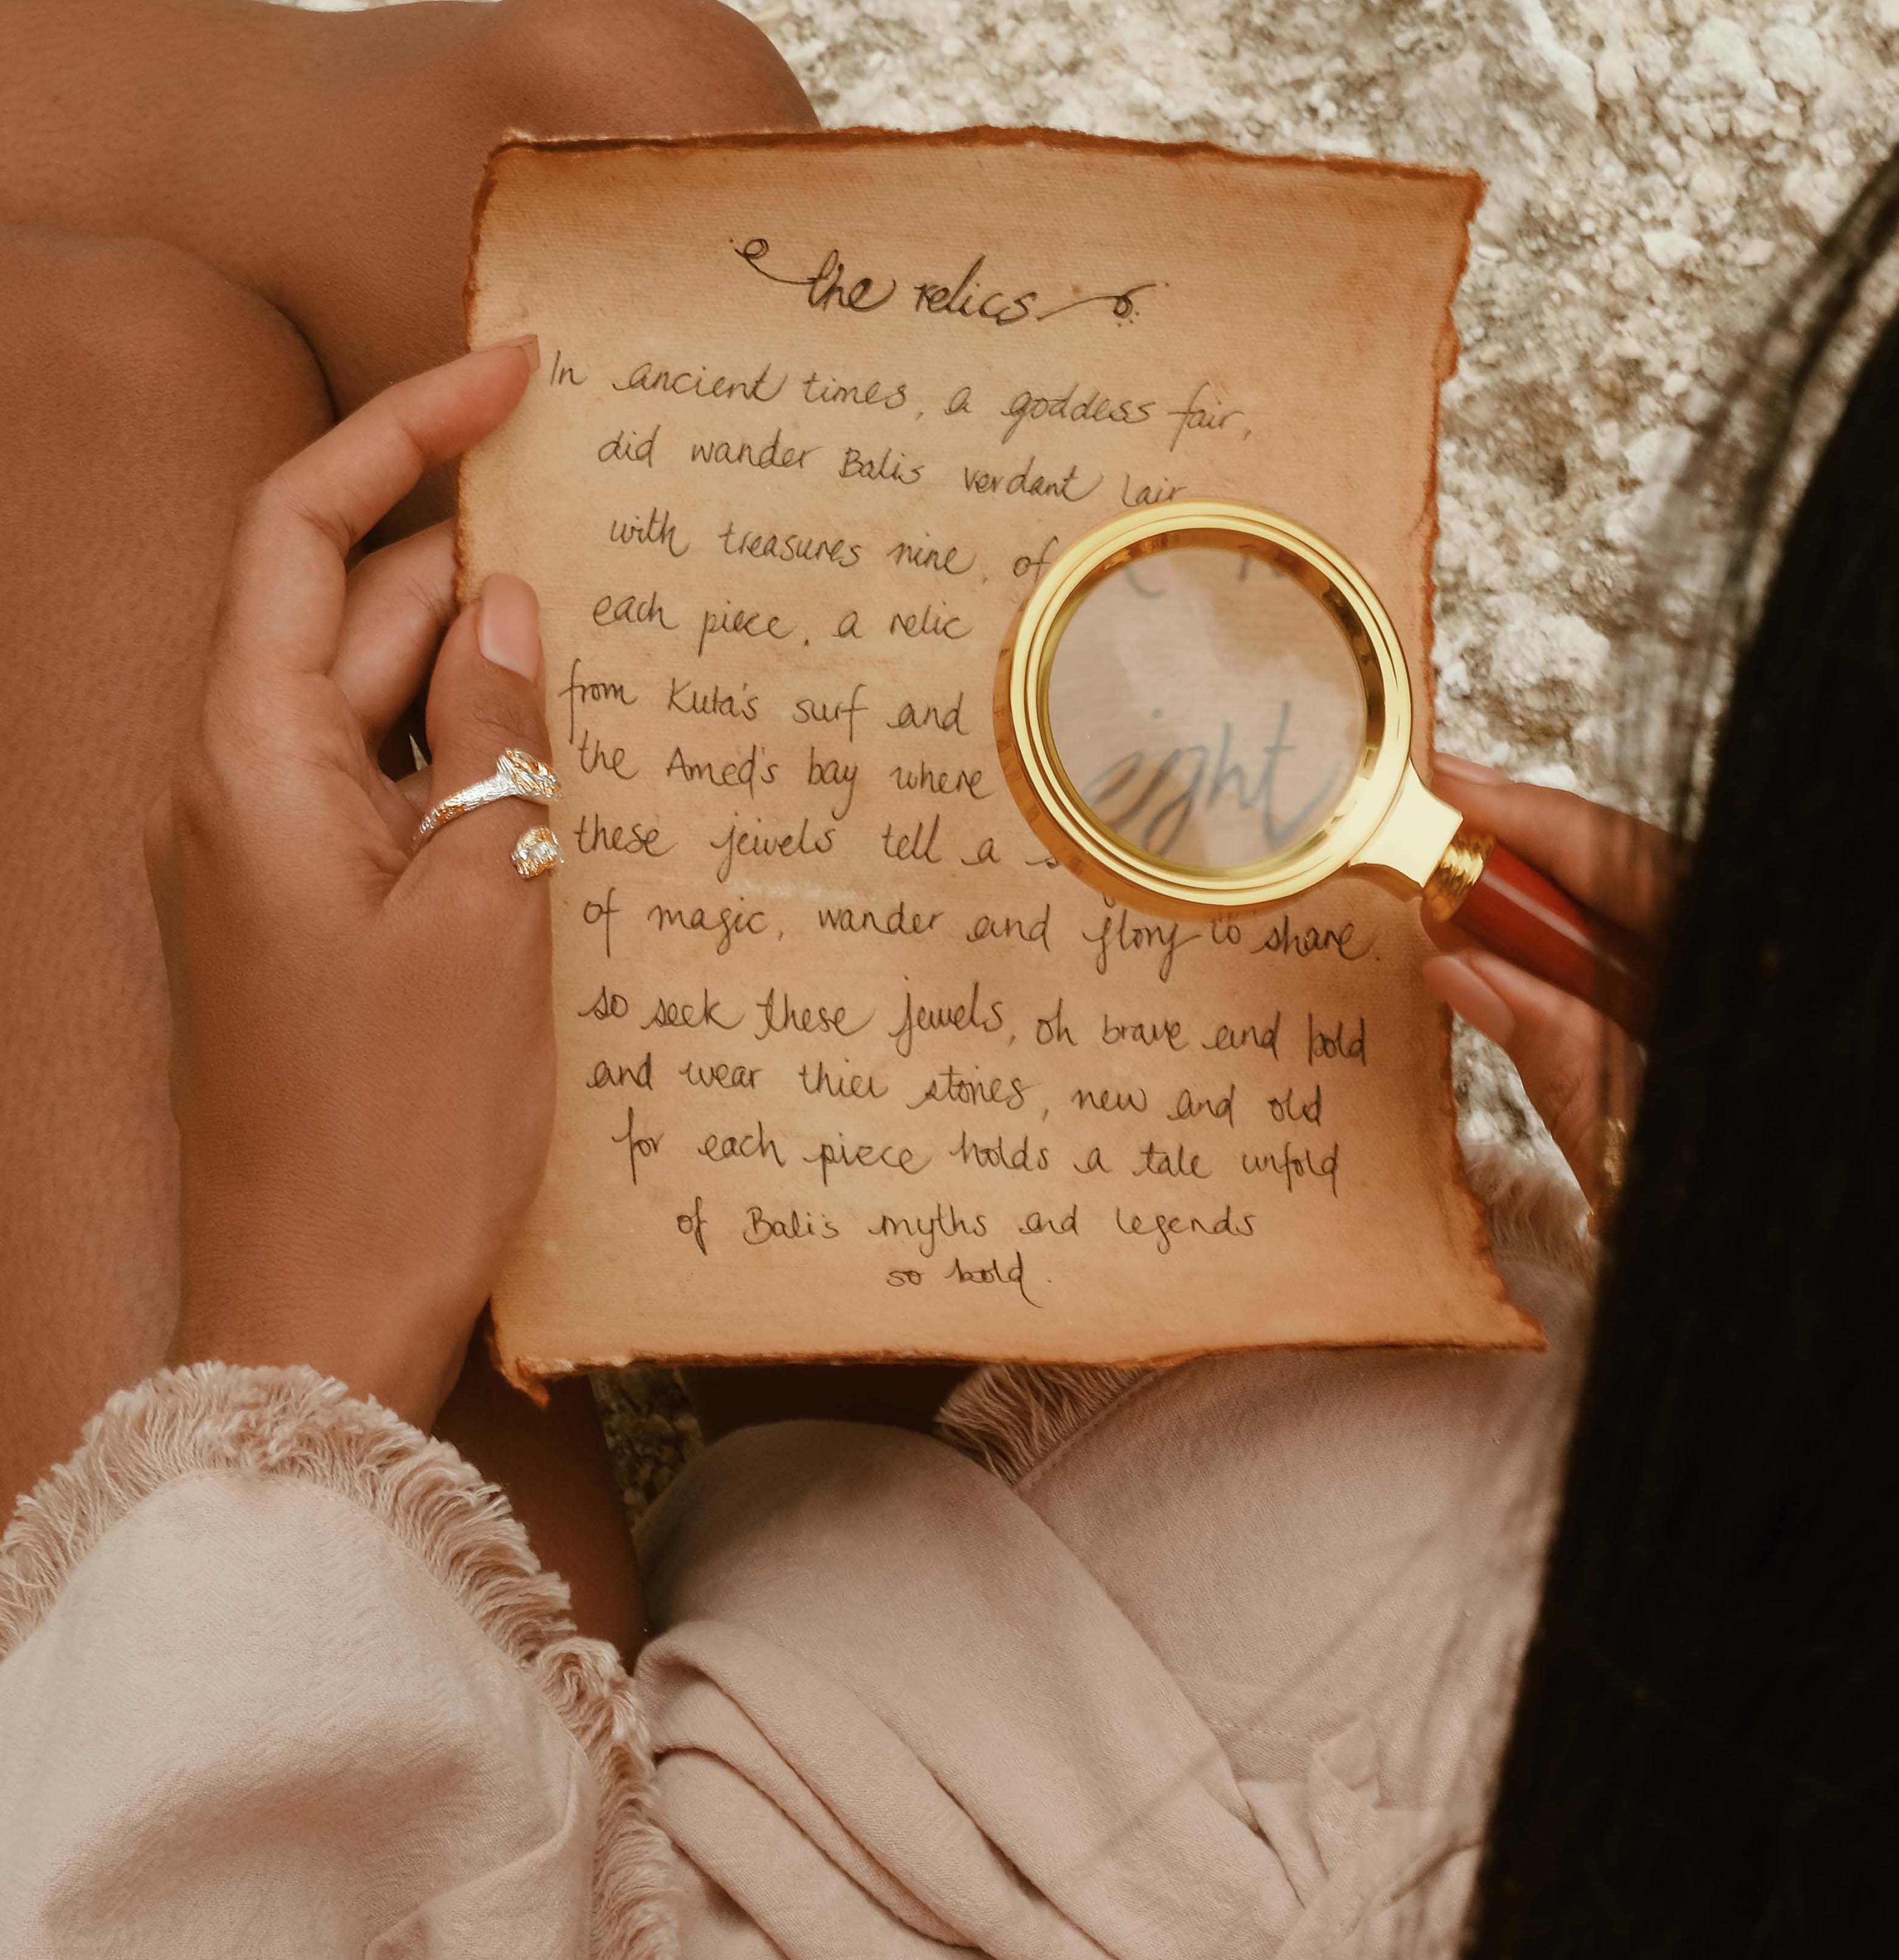 the relics
In ancient times, a goddess fair,
did wander Balis verdant lair
with treasures nine, of
each piece, a relic
from Kuta's surf and
the Amed's bay where
ight
these jewels tell a
of magic, wander and glory to share.
so seek these jewels, oh brave and bold
and wear thier stories, new and old
for each piece holds a tale unfold
of Bali's myths and legends
so bold.